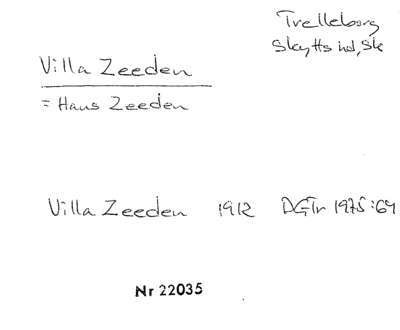 Trelleborg
Skytts hd, Sk
Villa Zeeden
= Hans Zeeden
Villa Zeeden 1912 DGTr 1975:64
Nr 22035